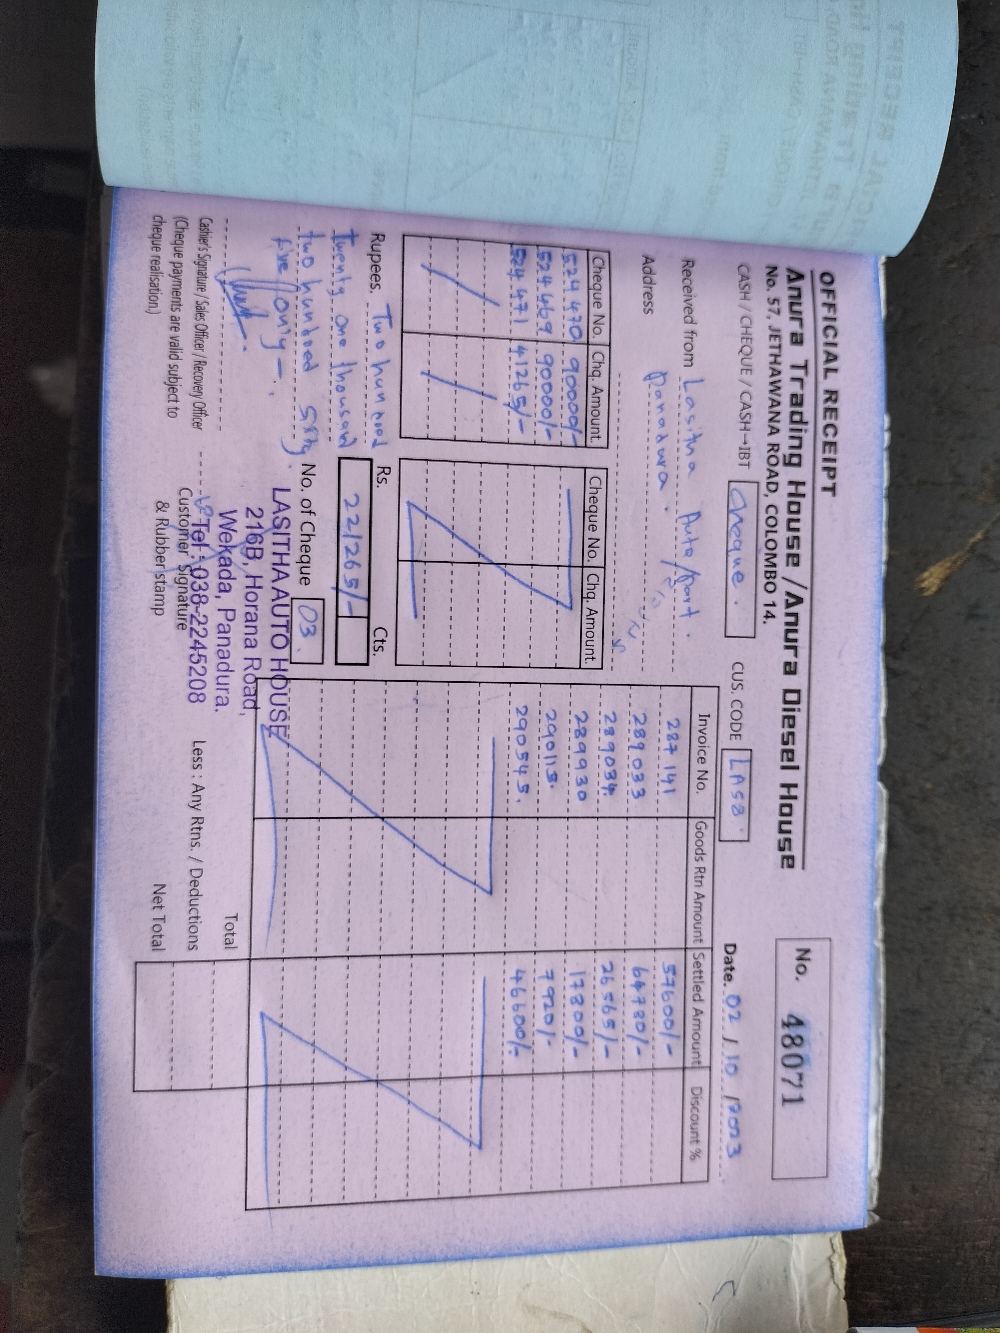 OFFICIAL RECEIPT
Anura Trading House / Anura Diesel House
No. 57, JETHAWANA ROAD, COLOMBO 14.
No. 48071
CASH / CHEQUE / CASH→IBT Cheque. CUS. CODE LAS2 Date. 02 / 10 / 2023
Received from Lasitha Auto Part.
Address Panadura.
Cheque No. Chq. Amount.
524 470 90000/-
524 469 90000/-
524 471 41265/-
Cheque No. Chq. Amount.
Invoice No. Goods Rtn Amount Settled Amount Discount %
287 141 57600/-
289 033 64780/-
289034 26565/-
289930 17800/-
290115. 7920/-
290545. 46600/-
Rupees. Two hundred
twenty one thousand
two hundred sixty
five / only -.
Rs. Cts.
221265/-
No. of Cheque 03.
LASITHA AUTO HOUSE
216B, Horana Road,
Wekada, Panadura.
Tel : 038-2245208
Cashier's Signature / Sales Officer / Recovery Officer
(Cheque payments are valid subject to
cheque realisation.)
Customer, Signature
& Rubber stamp
Total
Less : Any Rtns. / Deductions
Net Total